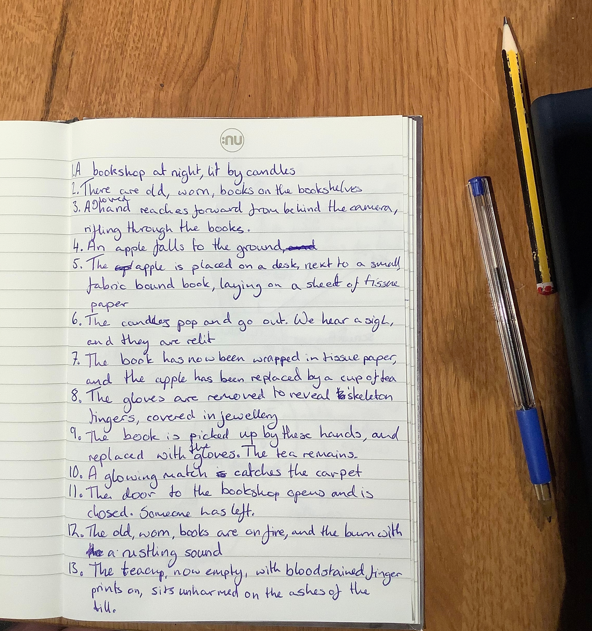 :nu
1. A bookshop at night, lit by candles
2. There are old, worn, books on the bookshelves
3. A gloved hand reaches forward from behind the camera,
rifling through the books.
4. An apple falls to the ground,
5. The apple is placed on a desk, next to a small,
fabric bound book, laying on a sheet of tissue
paper
6. The candles pop and go out. We hear a sigh,
and they are relit
7. The book has now been wrapped in tissue paper,
and the apple has been replaced by a cup of tea
8. The gloves are removed to reveal skeleton
fingers, covered in jewellery
9. The book is picked up by these hands, and
replaced with the gloves. The tea remains.
10. A glowing match catches the carpet
11. The door to the bookshop opens and is
closed. Someone has left.
12. The old, worn, books are on fire, and the burn with
a rustling sound
13. The teacup, now empty, with bloodstained finger
prints on, sits unharmed on the ashes of the
till.